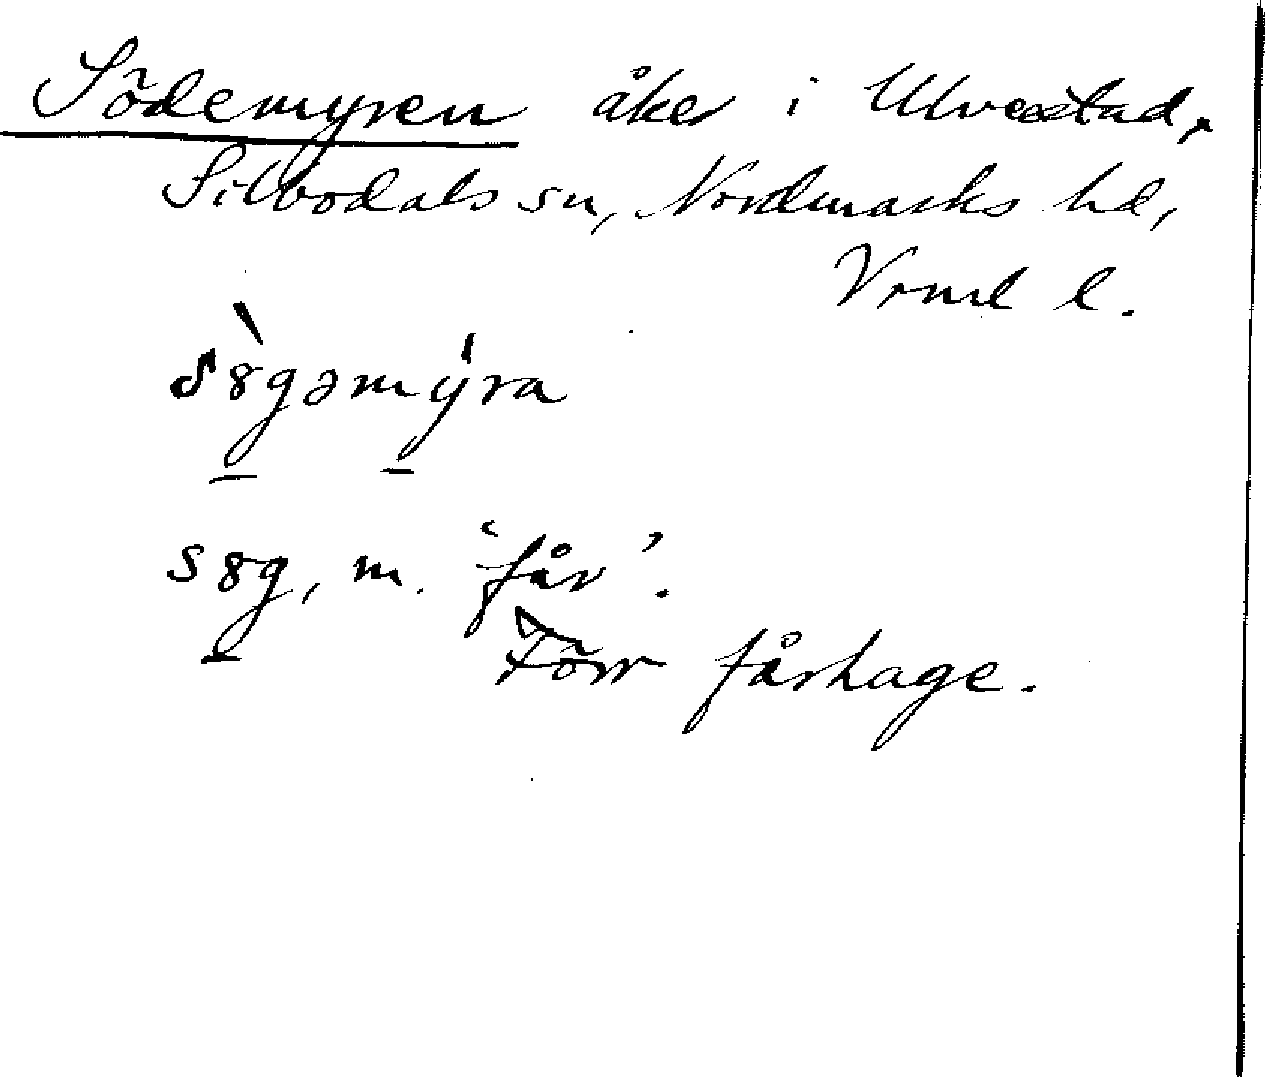 Södemyren åker i Ulvestad,
Silbodals sn, Nordmarks hd,
Vrml l.
s8̀gəmýra
s8g, m. 'får'.
Förr fårhage.